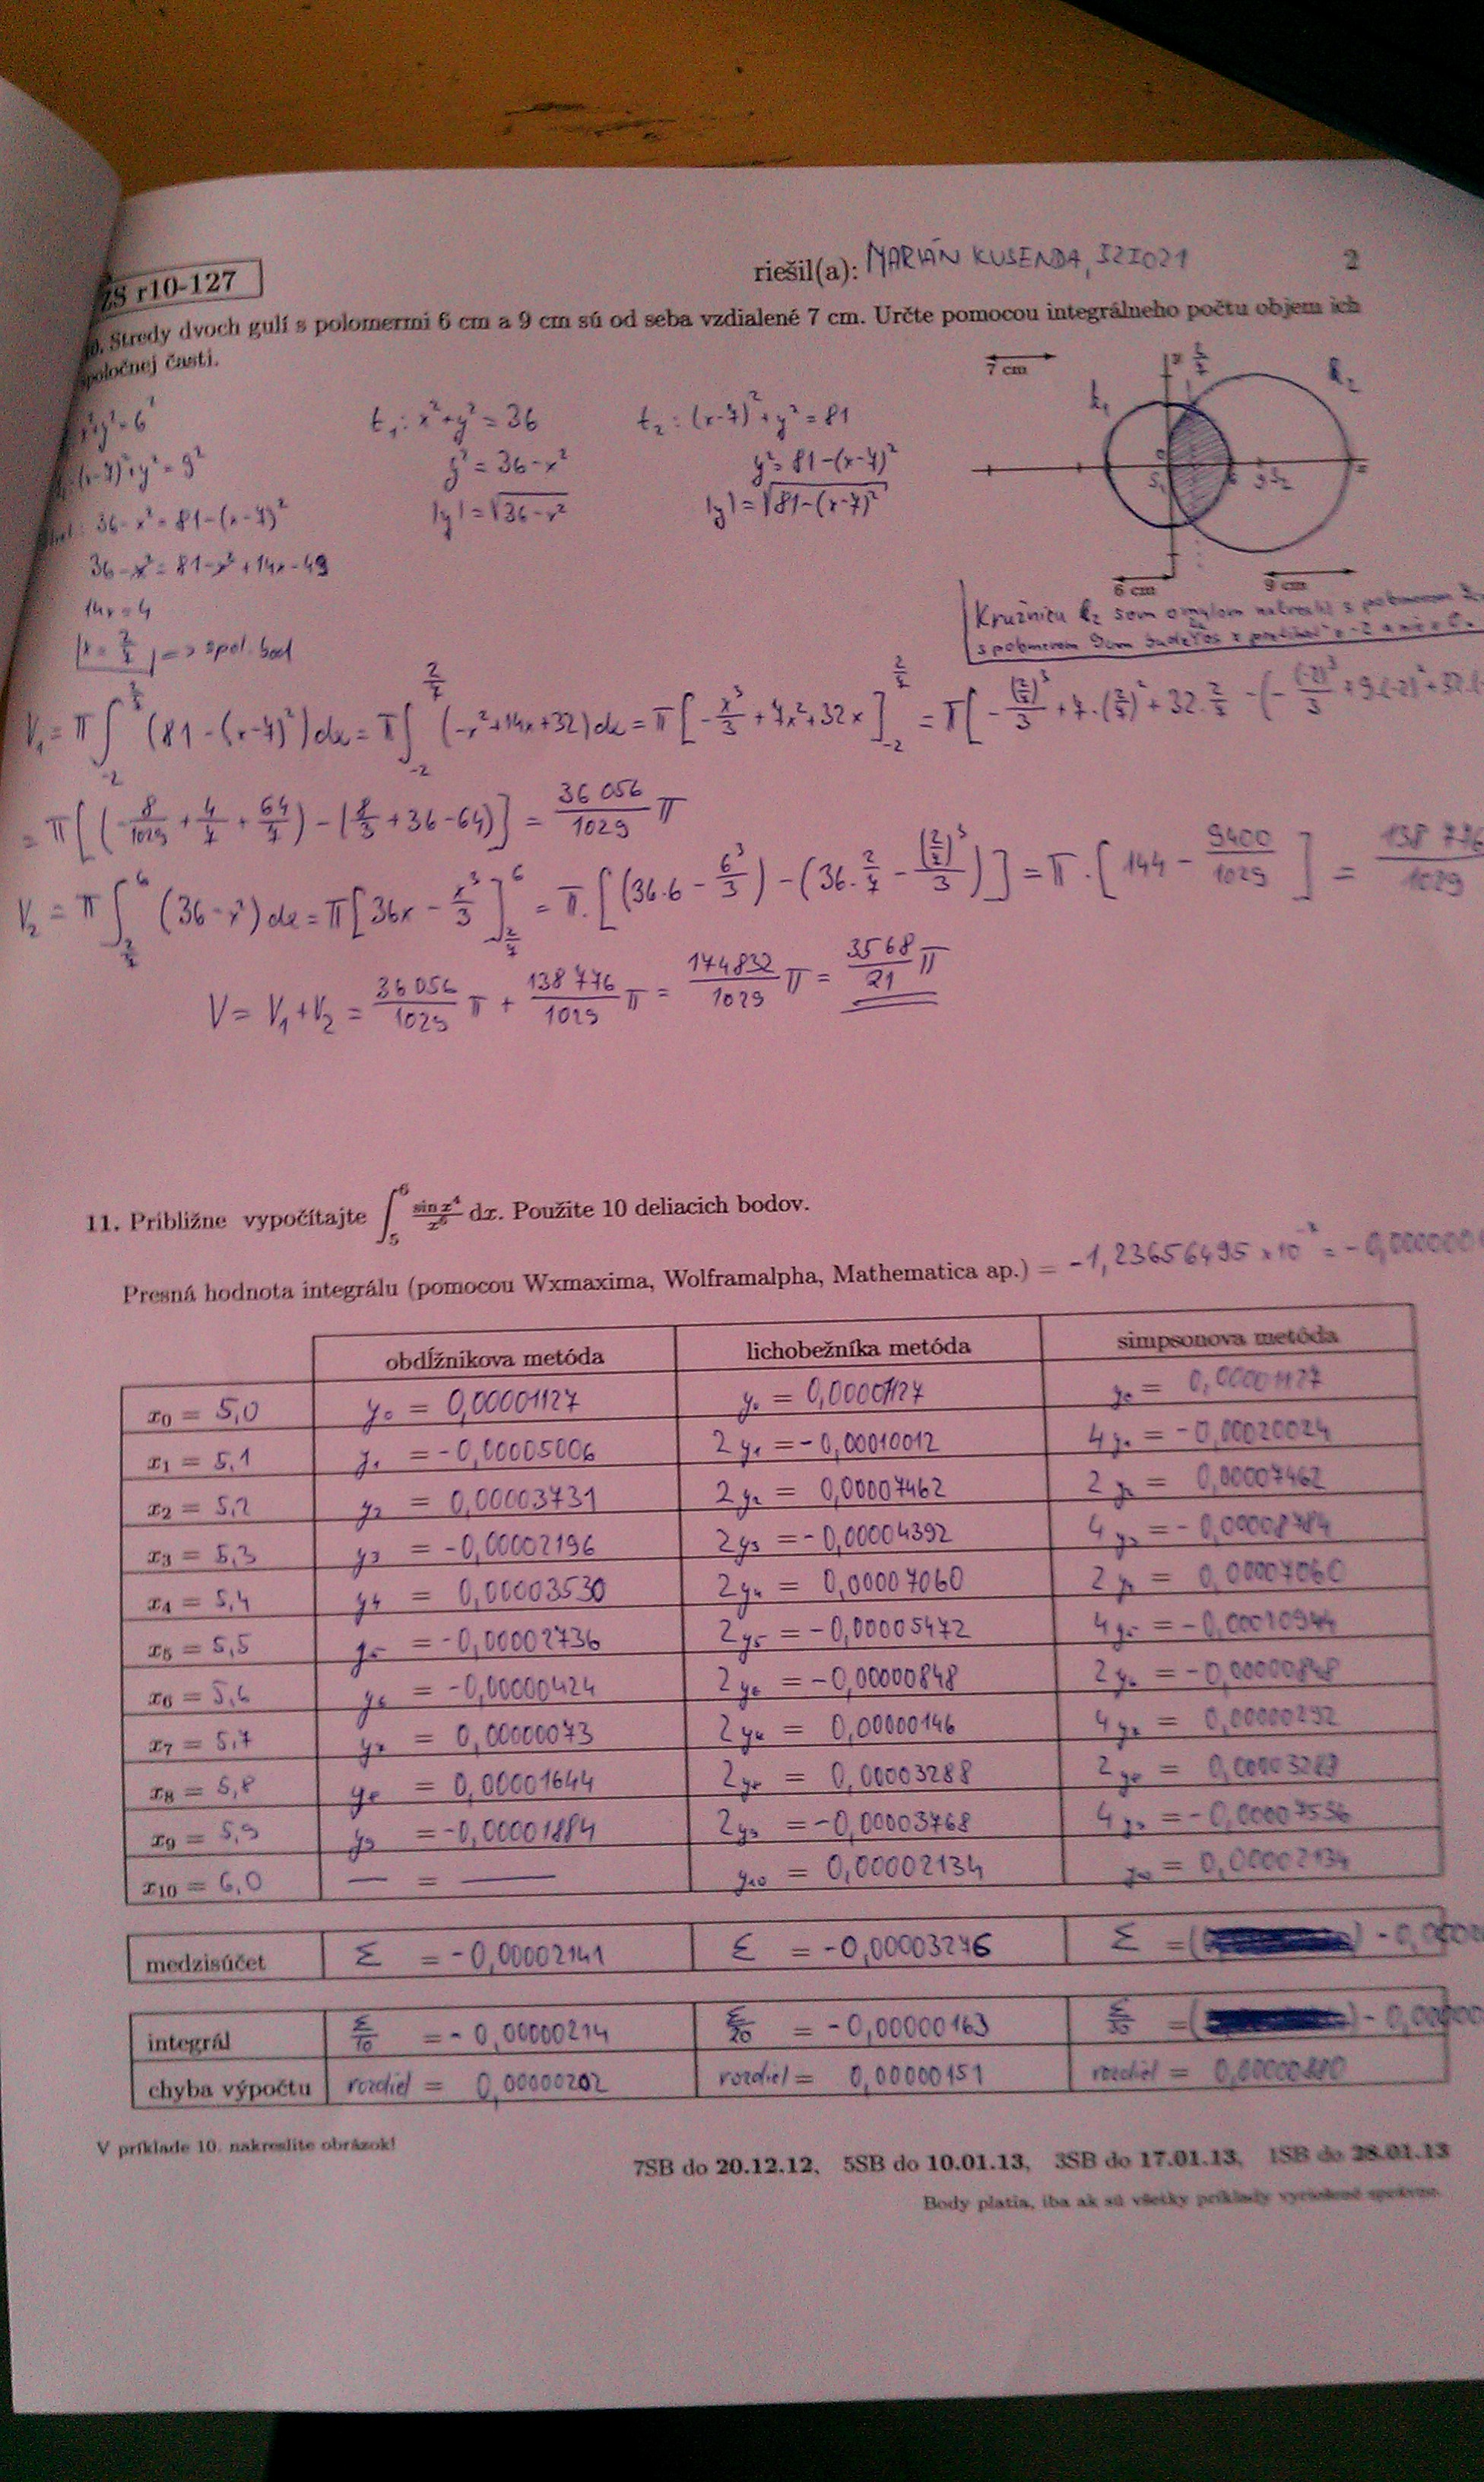 ZS r10-127
riešil(a): MARIÁN KUSENDA, 5ZI021
2
10. Stredy dvoch gulí s polomermi 6 cm a 9 cm sú od seba vzdialené 7 cm. Určte pomocou integrálneho počtu objem ich
spoločnej časti.
7 cm
k₁
k₂
6 cm
9 cm
x²+y²=6²
(x-7)²+y²=9²
36-x²=81-(x-7)²
36-x²=81-x²+14x-49
14x=4
x=2/7 => spol. bod
k₁: x²+y²=36
y²=36-x²
|y|=√(36-x²)
k₂: (x-7)²+y²=81
y²=81-(x-7)²
|y|=√(81-(x-7)²)
Kružnicu k₂ som omylom nakreslil s polomerom
s polomerom 9cm bude os x pretínať v -2 a nie v 0.
V₁ = π∫₋₂^(2/7) (81-(x-7)²)dx = π∫₋₂^(2/7) (-x²+14x+32)dx = π[-x³/3+7x²+32x]₋₂^(2/7) = π[-(2/7)³/3+7·(2/7)²+32·2/7-(-(-2)³/3+9·(-2)²+32·(-
= π[(-8/1029+4/7+64/7)-(8/3+36-64)] = 36 056/1029 π
V₂ = π∫_(2/7)^6 (36-x²)dx = π[36x-x³/3]_(2/7)^6 = π·[(36·6-6³/3)-(36·2/7-(2/7)³/3)] = π·[144-9400/1029] = 138 776/1029
V = V₁+V₂ = 36 056/1029 π + 138 776/1029 π = 174832/1029 π = 3568/21 π
11. Približne vypočítajte ∫₅⁶ sin x⁴/x⁶ dx. Použite 10 deliacich bodov.
Presná hodnota integrálu (pomocou Wxmaxima, Wolframalpha, Mathematica ap.) = -1,23656495 x10 = -0,000000
obdĺžnikova metóda
lichobežníka metóda
simpsonova metóda
x₀ = 5,0 y₀ = 0,00001127 y₀ = 0,00001127 y₀ = 0,00001127
x₁ = 5,1 y₁ = -0,00005006 2y₁ = -0,00010012 4y₁ = -0,00020024
x₂ = 5,2 y₂ = 0,00003731 2y₂ = 0,00007462 2y₂ = 0,00007462
x₃ = 5,3 y₃ = -0,00002196 2y₃ = -0,00004392 4y₃ = -0,00008784
x₄ = 5,4 y₄ = 0,00003530 2y₄ = 0,00007060 2y₄ = 0,00007060
x₅ = 5,5 y₅ = -0,00002736 2y₅ = -0,00005472 4y₅ = -0,00010944
x₆ = 5,6 y₆ = -0,00000424 2y₆ = -0,00000848 2y₆ = -0,00000848
x₇ = 5,7 y₇ = 0,00000073 2y₇ = 0,00000146 4y₇ = 0,00000292
x₈ = 5,8 y₈ = 0,00001644 2y₈ = 0,00003288 2y₈ = 0,00003288
x₉ = 5,9 y₉ = -0,00001884 2y₉ = -0,00003768 4y₉ = -0,00007536
x₁₀ = 6,0 — = — y₁₀ = 0,00002134 y₁₀ = 0,00002134
medzisúčet Σ = -0,00002141 Σ = -0,00003276 Σ =
integrál Σ/10 = -0,00000214 Σ/20 = -0,00000163 Σ/30 =
chyba výpočtu rozdiel = 0,00000202 rozdiel = 0,00000151 rozdiel = 0,00000880
V príklade 10. nakreslite obrázok!
7SB do 20.12.12, 5SB do 10.01.13, 3SB do 17.01.13, 1SB do 28.01.13
Body platia, iba ak sú všetky príklady vyriešené správne.